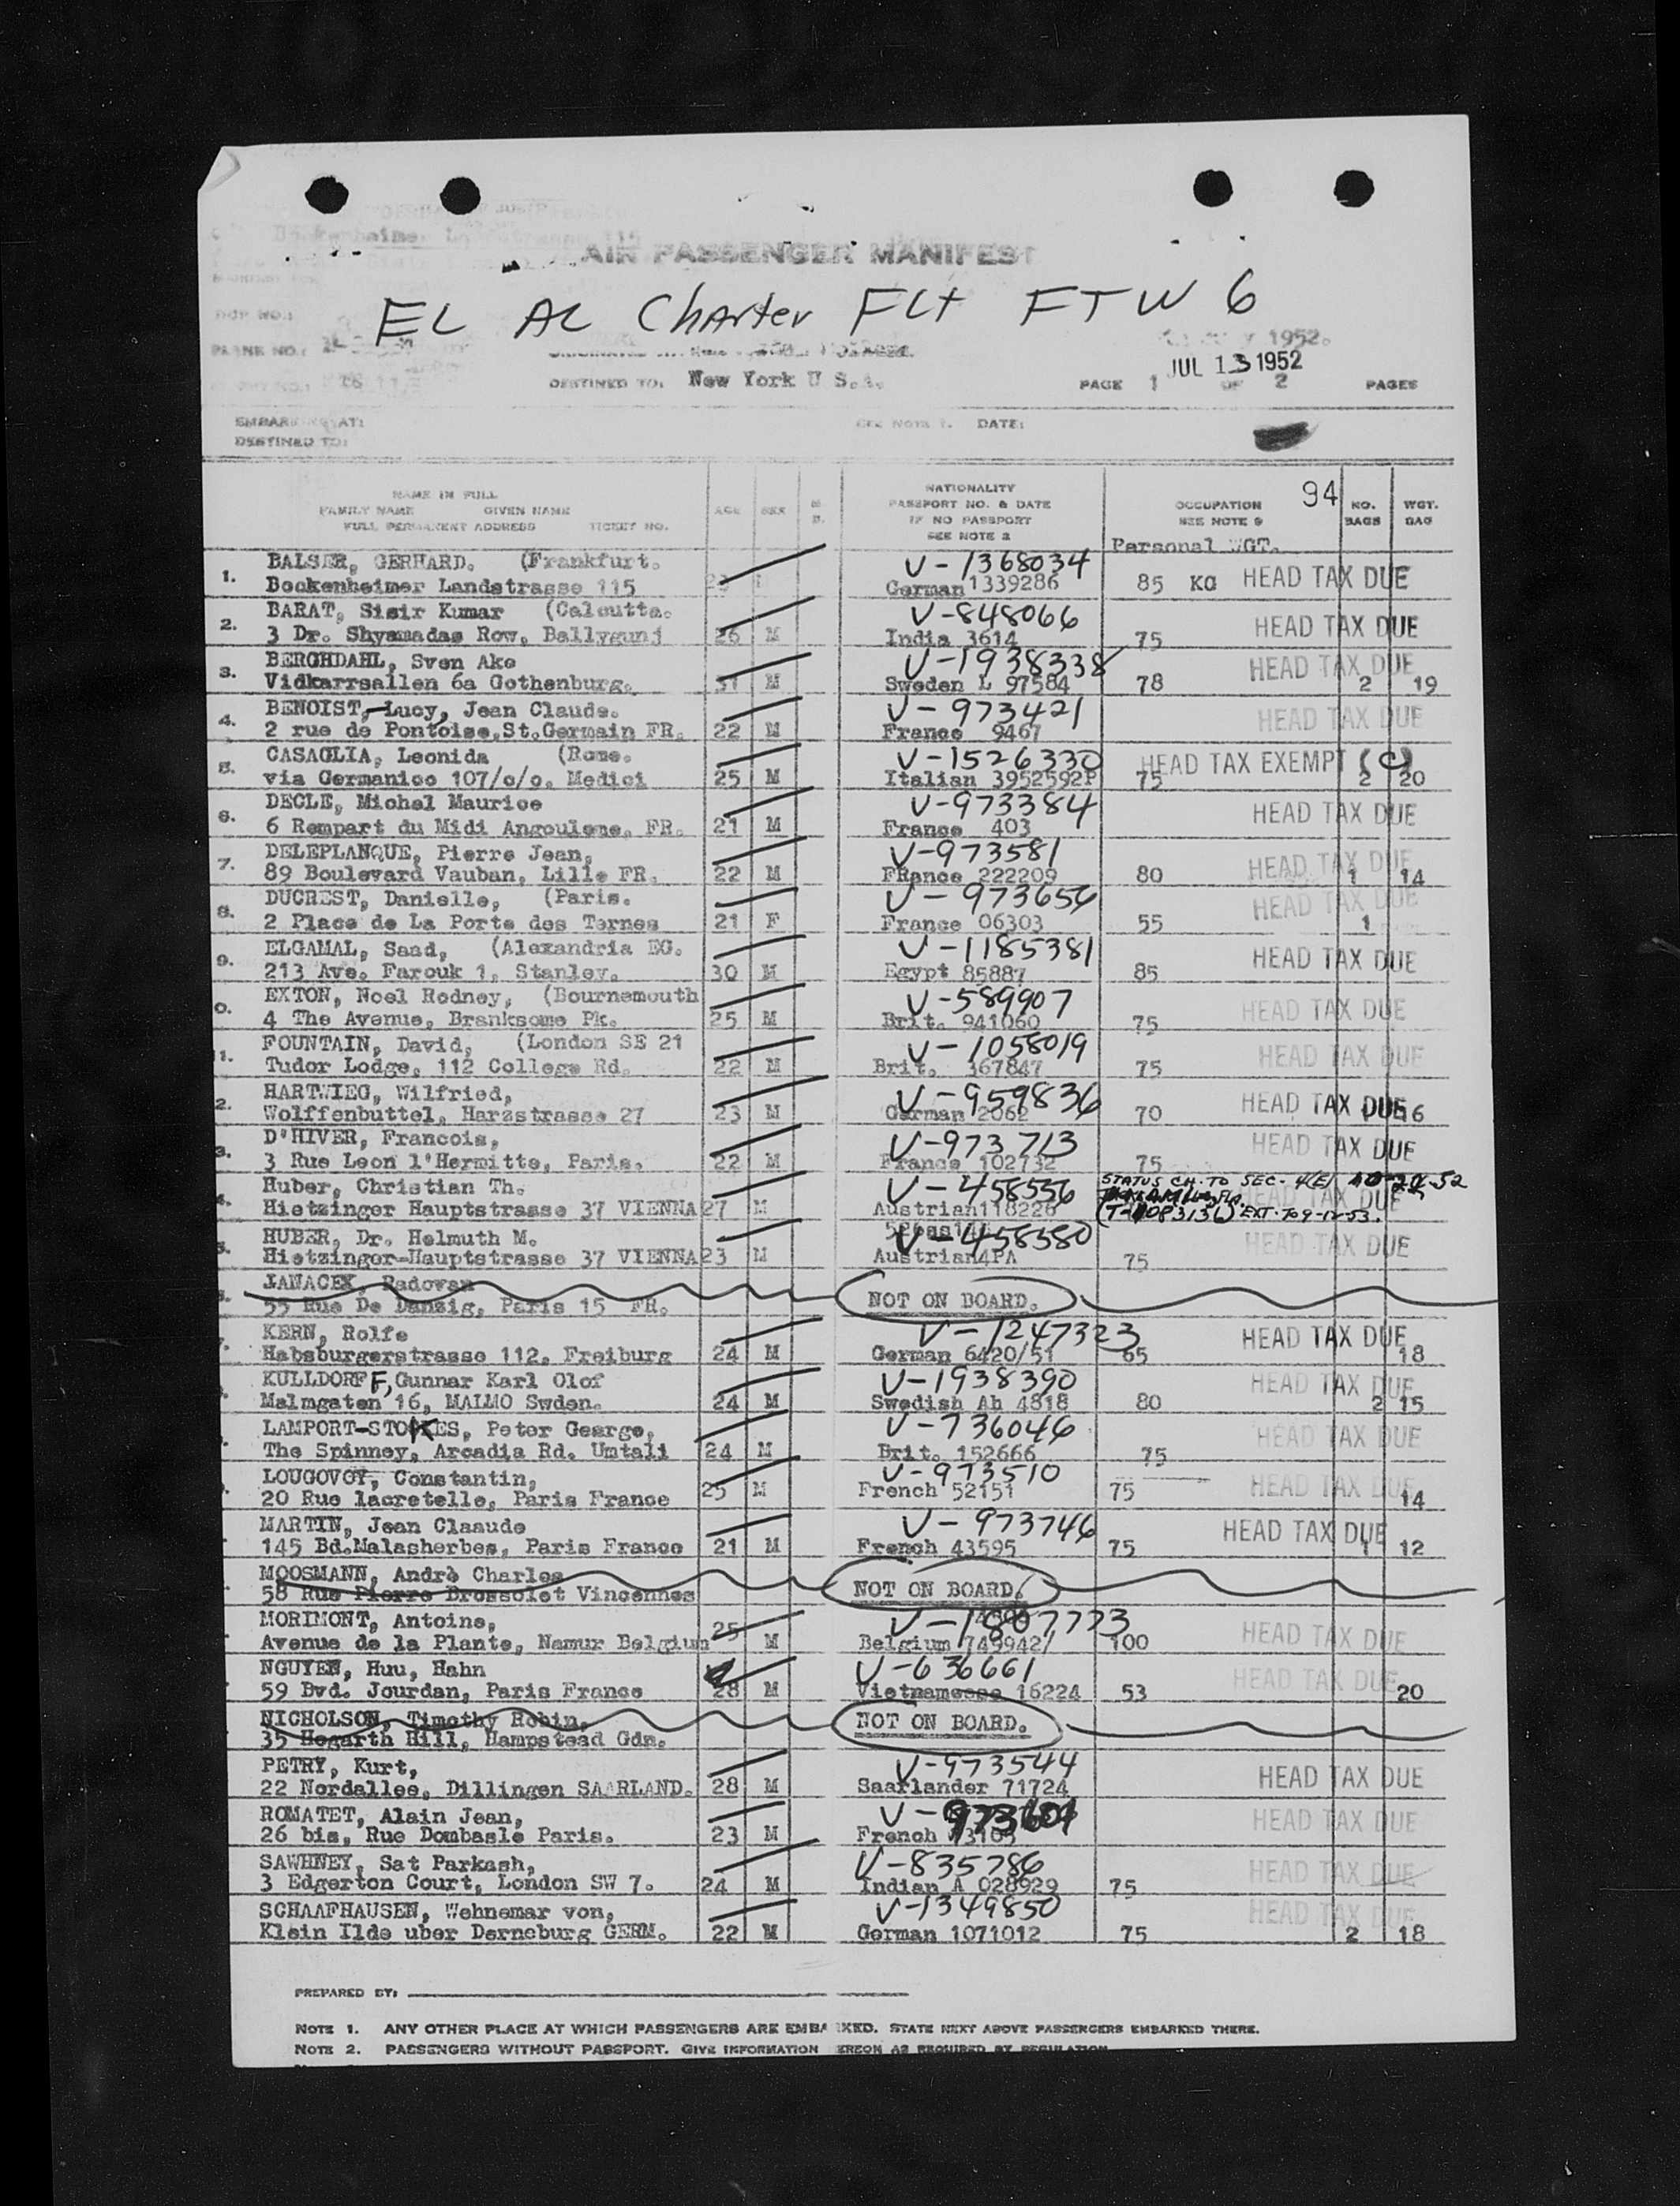 AIR PASSENGER MANIFEST
EL AL Charter FLt FTW 6
PLANE NO.: 1952.
JUL 13 1952
DESTINED TO: New York U S.A. PAGE 1 OF 2 PAGES
EMBARKING AT: SEE NOTE 1. DATE:
DESTINED TO:
94
NAME IN FULL NATIONALITY
FAMILY NAME GIVEN NAME AGE SEX PASSPORT NO. & DATE OCCUPATION NO. WGT.
FULL PERMANENT ADDRESS TICKET NO. IF NO PASSPORT SEE NOTE BAGS BAG
SEE NOTE 2 Personal WGT.
BALSER, GERHARD. (Frankfurt. V-1368034
1. Bockenheimer Landstrasse 115 German 1339286 85 KG HEAD TAX DUE
BARAT, Sisir Kumar (Calcutta. V-848066 HEAD TAX DUE
2. 3 Dr. Shyamadas Row, Ballygunj 26 M India 3614 75
BERGHDAHL, Sven Ake V-1938338 HEAD TAX DUE
3. Vidkarrsallen 6a Gothenburg. 31 M Sweden L 97584 78 2 19
BENOIST,-Lucy, Jean Claude. V-973421 HEAD TAX DUE
4. 2 rue de Pontoise,St.Germain FR. 22 M France 9467
CASAGLIA, Leonida (Rome. V-1526330 HEAD TAX EXEMPT (C)
5. via Germanico 107/c/o. Medici 25 M Italian 3952592P 75 2 20
DECLE, Michel Maurice V-973384 HEAD TAX DUE
6. 6 Rempart du Midi Angouleme, FR. 21 M France 403
DELEPLANQUE, Pierre Jean, V-973581 HEAD TAX DUE
7. 89 Boulevard Vauban, Lille FR. 22 M FRance 222209 80 1 14
DUCREST, Danielle, (Paris. V-973656 HEAD TAX DUE
8. 2 Place de La Porte des Ternes 21 F France 06303 55 1
ELGAMAL, Saad, (Alexandria EG. V-1185381 HEAD TAX DUE
9. 213 Ave. Farouk 1, Stanley. 30 M Egypt 85887 85
EXTON, Noel Rodney, (Bournemouth V-589907 HEAD TAX DUE
0. 4 The Avenue, Branksome Pk. 25 M Brit. 941060 75
FOUNTAIN, David, (London SE 21 V-1058019 HEAD TAX DUE
1. Tudor Lodge, 112 College Rd. 22 M Brit. 367847 75
HARTWIEG, Wilfried, V-959836 HEAD TAX DUE
2. Wolffenbuttel, Harzstrasse 27 23 M German 2062 70 1 16
D'HIVER, Francois, V-973713 HEAD TAX DUE
3. 3 Rue Leon l'Hermitte, Paris. 22 M France 102732 75
Huber, Christian Th. V-458556 STATUS CH. TO SEC- 4(E) HEAD TAX DUE
4. Hietzinger Hauptstrasse 37 VIENNA 27 M Austrian 118226 EXT. TO 9-12-53.
HUBER, Dr. Helmuth M. V-458580 HEAD TAX DUE
5. Hietzinger-Hauptstrasse 37 VIENNA 23 M Austrian4PA 75
JANACEK, Radovan
55 Rue De Danzig, Paris 15 FR. NOT ON BOARD.
KERN, Rolfe V-1247323 HEAD TAX DUE
Habsburgerstrasse 112, Freiburg 24 M German 6420/51 65 18
KULLDORFF, Gunnar Karl Olof V-1938390 HEAD TAX DUE
Malmgaten 16, MALMO Swden. 24 M Swedish Ah 4818 80 2 15
LAMPORT-STOKES, Peter Gearge, V-736046 HEAD TAX DUE
The Spinney, Arcadia Rd. Umtali 24 M Brit. 152666 75
LOUGOVOY, Constantin, V-973510 HEAD TAX DUE
20 Rue lacretelle, Paris France 25 M French 52151 75 14
MARTIN, Jean Claaude V-973746 HEAD TAX DUE
145 Bd.Malasherbes, Paris France 21 M French 43595 75 1 12
MOOSMANN, Andrè Charles
58 Rue Pierre Brossolet Vincennes NOT ON BOARD.
MORIMONT, Antoine, V-1807773 HEAD TAX DUE
Avenue de la Plante, Namur Belgium 25 M Belgium 100
NGUYEN, Huu, Hahn V-636661 HEAD TAX DUE
59 Bvd. Jourdan, Paris France 28 M Vietnamesse 16224 53 20
NICHOLSON, Timothy Robin, NOT ON BOARD.
35 Hogarth Hill, Hampstead Gdn.
PETRY, Kurt, V-973544 HEAD TAX DUE
22 Nordallee, Dillingen SAARLAND. 28 M Saarlander 71724
ROMATET, Alain Jean, HEAD TAX DUE
26 bis, Rue Dombasle Paris. 23 M French
SAWHNEY, Sat Parkash, V-835786 HEAD TAX DUE
3 Edgerton Court, London SW 7. 24 M Indian A 028929 75
SCHAAFHAUSEN, Wehnemar von, V-1349850 HEAD TAX DUE
Klein Ilde uber Derneburg GERM. 22 M German 1071012 75 2 18
PREPARED BY:
NOTE 1. ANY OTHER PLACE AT WHICH PASSENGERS ARE EMBARKED. STATE NEXT ABOVE PASSENGERS EMBARKED THERE.
NOTE 2. PASSENGERS WITHOUT PASSPORT. GIVE INFORMATION HEREON AS REQUIRED BY REGULATION